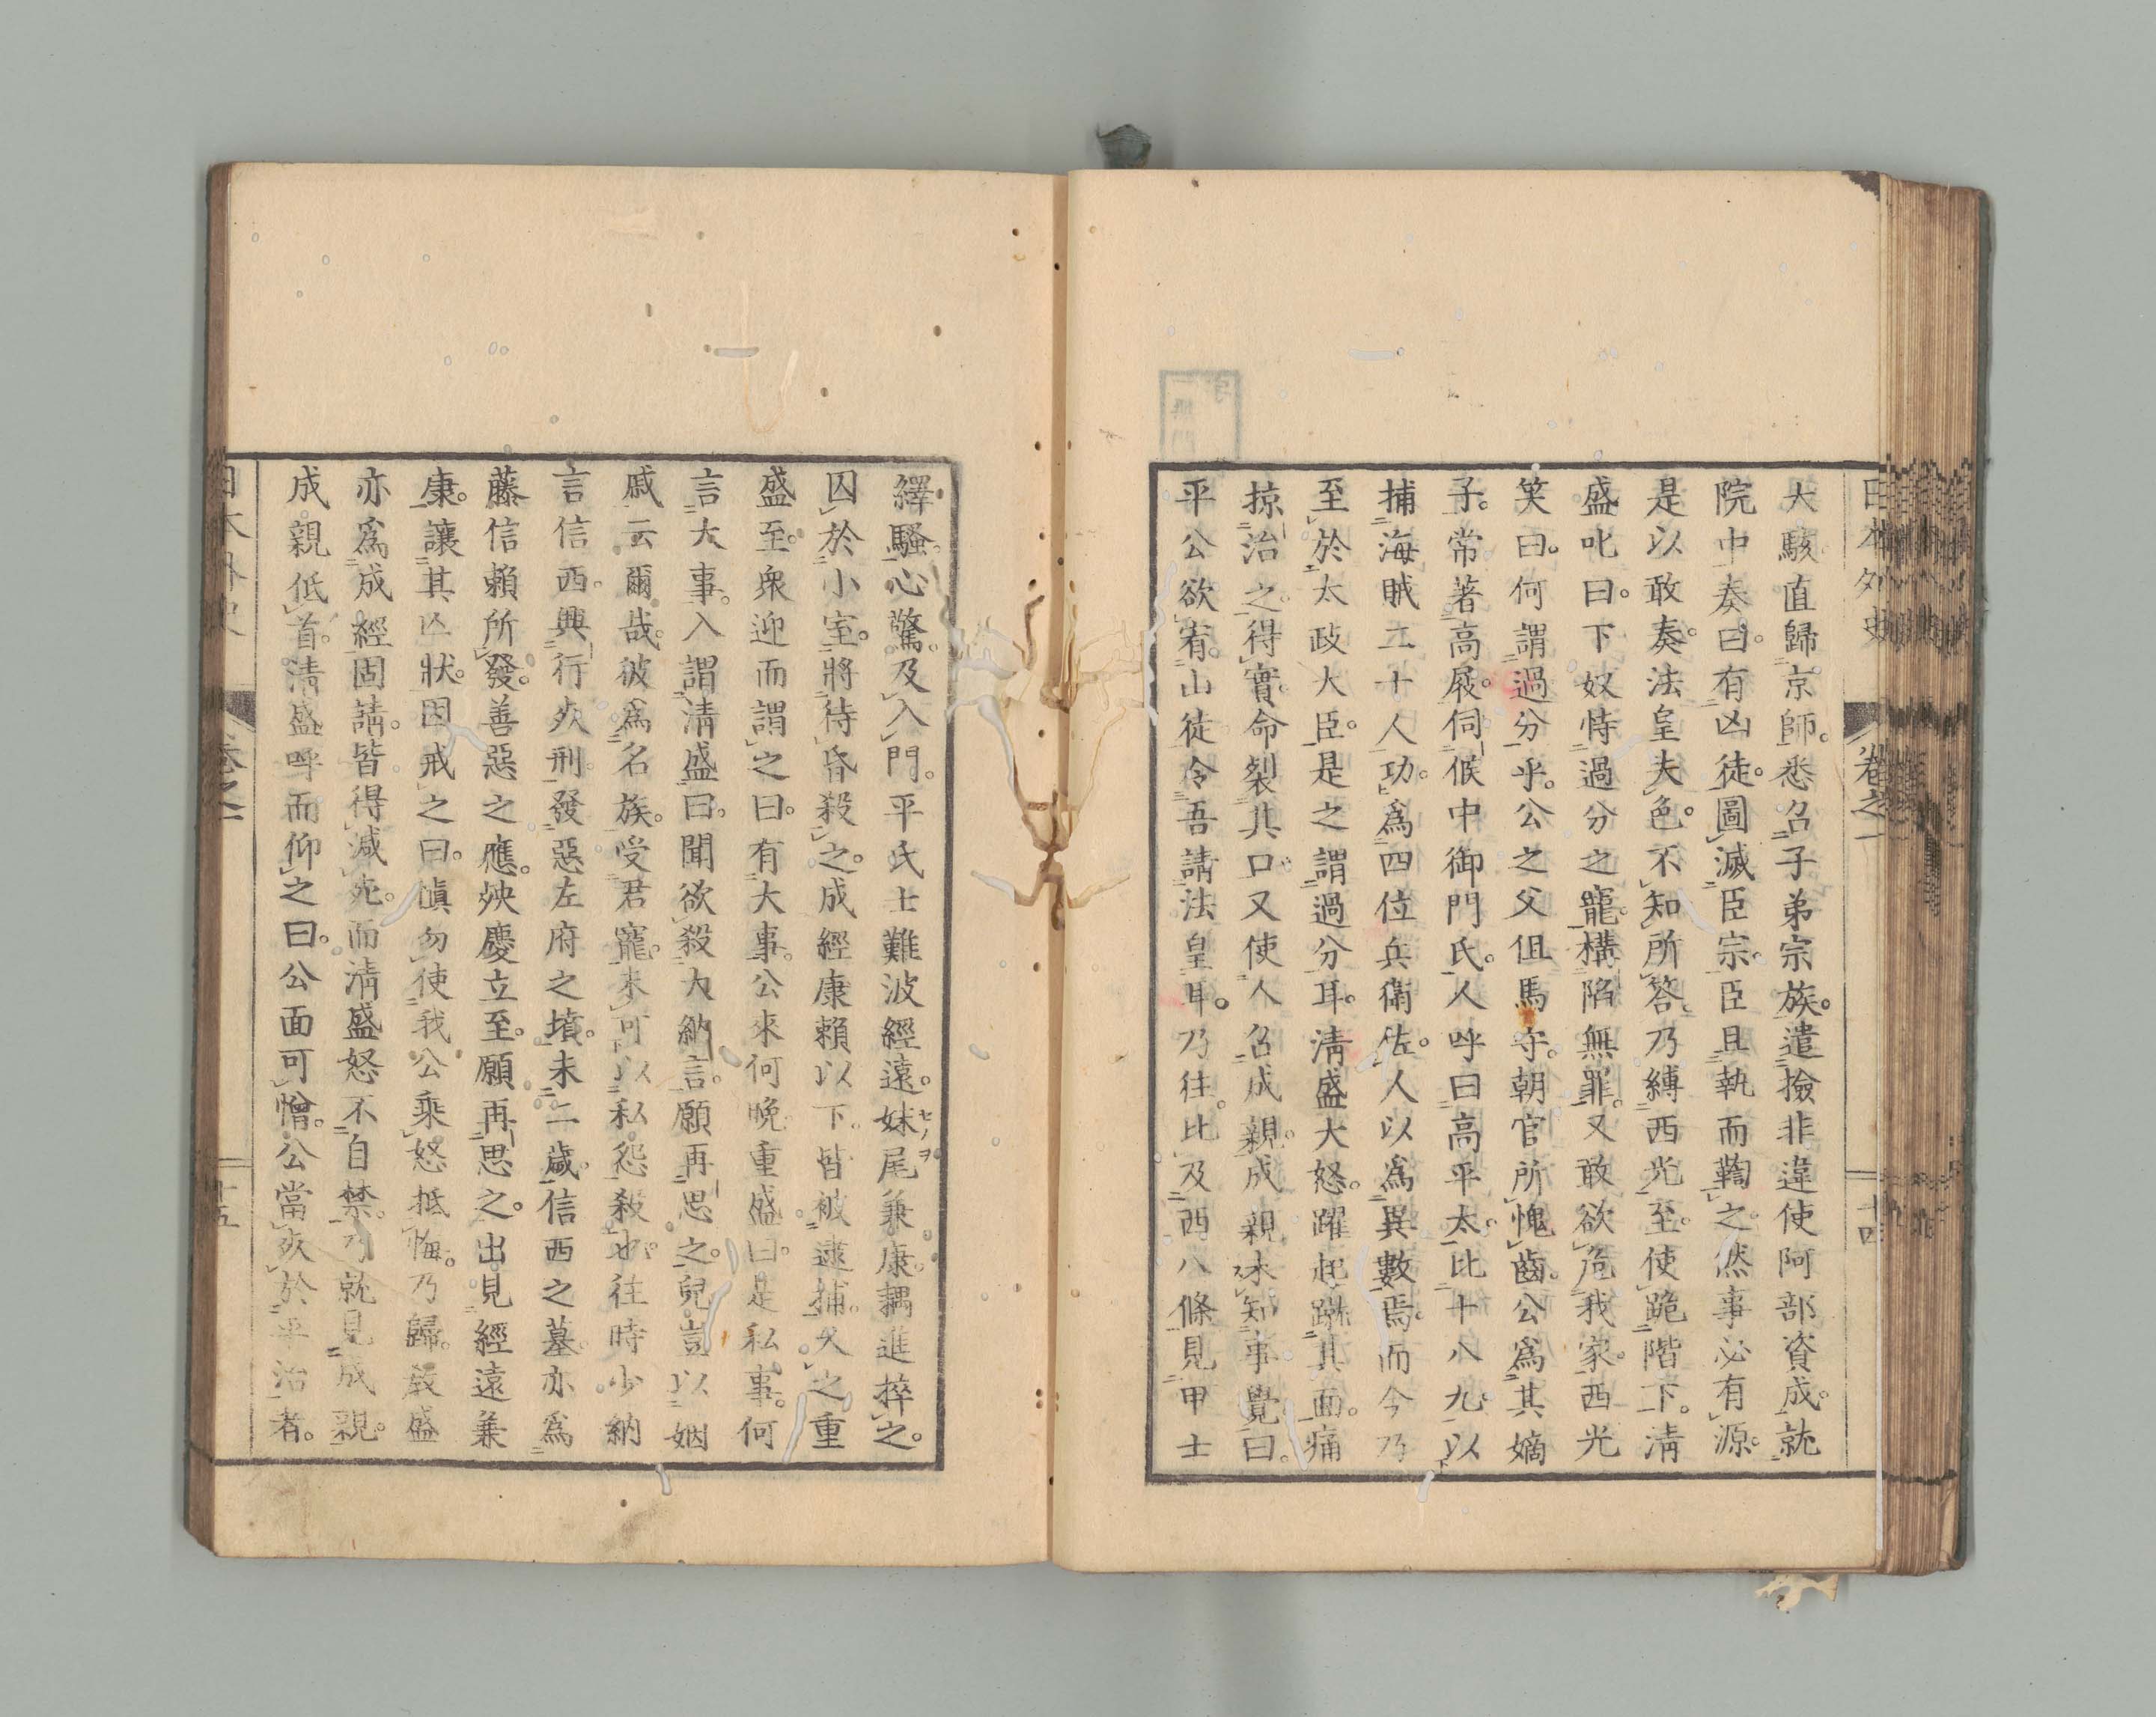 日本外史 卷之一 十四
大駭直歸京師。悉召子弟宗族。遣撿非違使阿部資成。就
院中奏曰。有凶徒。圖滅臣宗。臣且執而鞫之。然事必有源。
是以敢奏。法皇夫色。不知所答。乃縛西光至。使跪階下。淸
盛叱曰。下奴恃過分之寵。構陷無罪。又敢欲危我家。西光
笑曰。何謂過分乎。公之父但馬守。朝官所愧齒。公爲其嫡
子。常著高屐。伺候中御門氏。人呼曰高平太。比十八九以
捕海賊二十人功。爲四位兵衞佐。人以爲異數焉。而今乃
至於太政大臣。是之謂過分耳。淸盛大怒。躍起蹴其面。痛
掠治之。得實。命裂其口。又使人召成親。成親未知事覺。曰。
平公欲宥山徒。令吾請法皇耳。乃往。比及西八條。見甲士
繹騷。心驚。及入門。平氏士難波經遠。妹尾兼康。耦進捽之。
囚於小室。將待昏殺之。成經康賴以下。皆被逮捕。久之重
盛至。衆迎而謂之曰。有大事。公來何晩。重盛曰。是私事。何
言大事。入謂淸盛曰。聞欲殺大納言。願再思之。兒豈以姻
戚云爾哉。彼爲名族。受君寵。未可以私怨殺也。往時少納
言信西。興行死刑。發惡左府之墳。未二歲。信西之墓。亦爲
藤信賴所發。善惡之應。殃慶立至。願再思之。出見經遠兼
康。讓其凶狀。因戒之曰。愼勿使我公乘怒抵悔。乃歸。敎盛
亦爲成經固請。皆得減死。而淸盛怒不自禁。乃就見成親。
成親低首。淸盛呼而仰之曰。公面可憎。公當死於平治者。
卷之一 十五